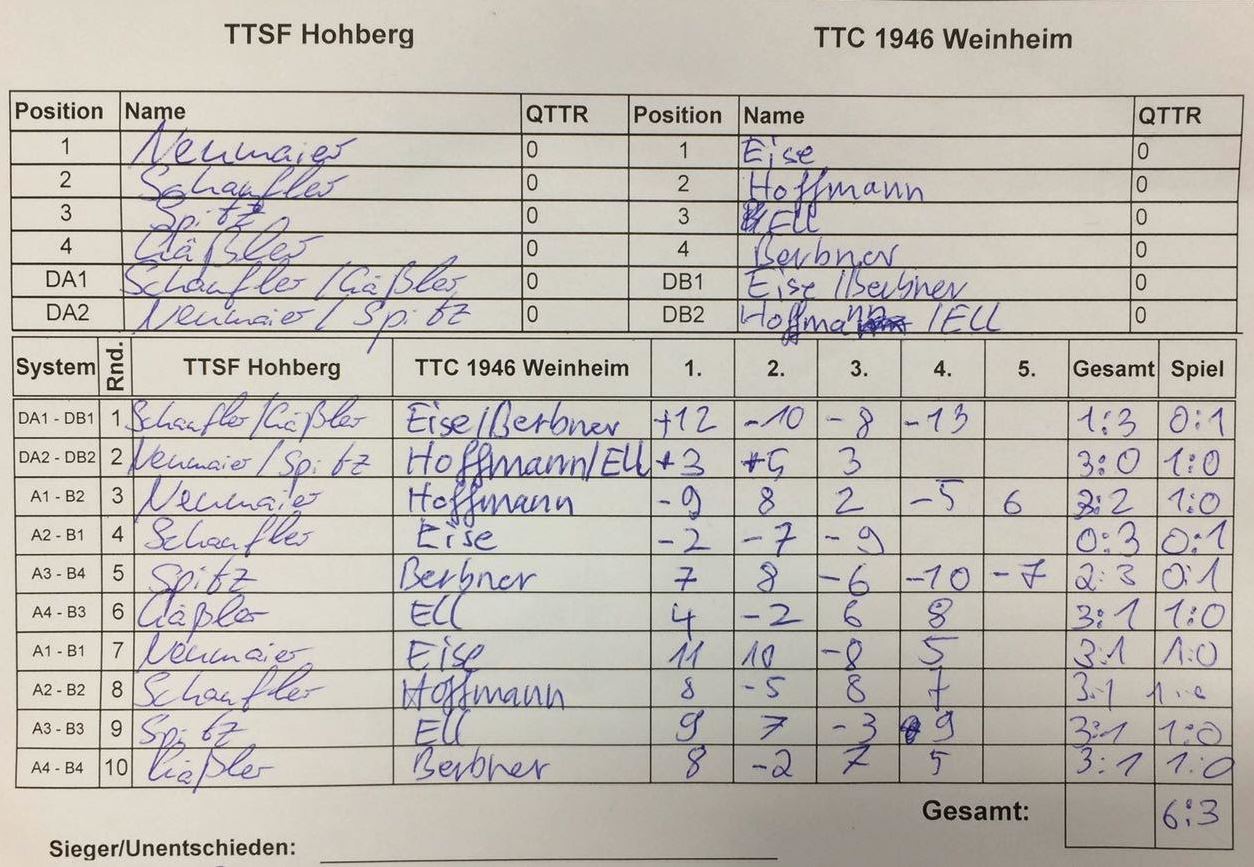 TTSF Hohberg TTC 1946 Weinheim
Position Name QTTR Position Name QTTR
1 Neumaier 0 1 Eise 0
2 Schaufler 0 2 Hoffmann 0
3 Spitz 0 3 Ell 0
4 Gäßler 0 4 Berbner 0
DA1 Schaufler/Gäßler 0 DB1 Eise/Berbner 0
DA2 Neumaier/Spitz 0 DB2 Hoffmann/Ell 0
System Rnd. TTSF Hohberg TTC 1946 Weinheim 1. 2. 3. 4. 5. Gesamt Spiel
DA1 - DB1 1 Schaufler/Gäßler Eise/Berbner +12 -10 -8 -13 1:3 0:1
DA2 - DB2 2 Neumaier/Spitz Hoffmann/Ell +3 +5 3 3:0 1:0
A1 - B2 3 Neumaier Hoffmann -9 8 2 -5 6 3:2 1:0
A2 - B1 4 Schaufler Eise -2 -7 -9 0:3 0:1
A3 - B4 5 Spitz Berbner 7 8 -6 -10 -7 2:3 0:1
A4 - B3 6 Gäßler Ell 4 -2 6 8 3:1 1:0
A1 - B1 7 Neumaier Eise 11 10 -8 5 3:1 1:0
A2 - B2 8 Schaufler Hoffmann 8 -5 8 7 3:1 1:0
A3 - B3 9 Spitz Ell 9 7 -3 9 3:1 1:0
A4 - B4 10 Gäßler Berbner 8 -2 7 5 3:1 1:0
Gesamt: 6:3
Sieger/Unentschieden: